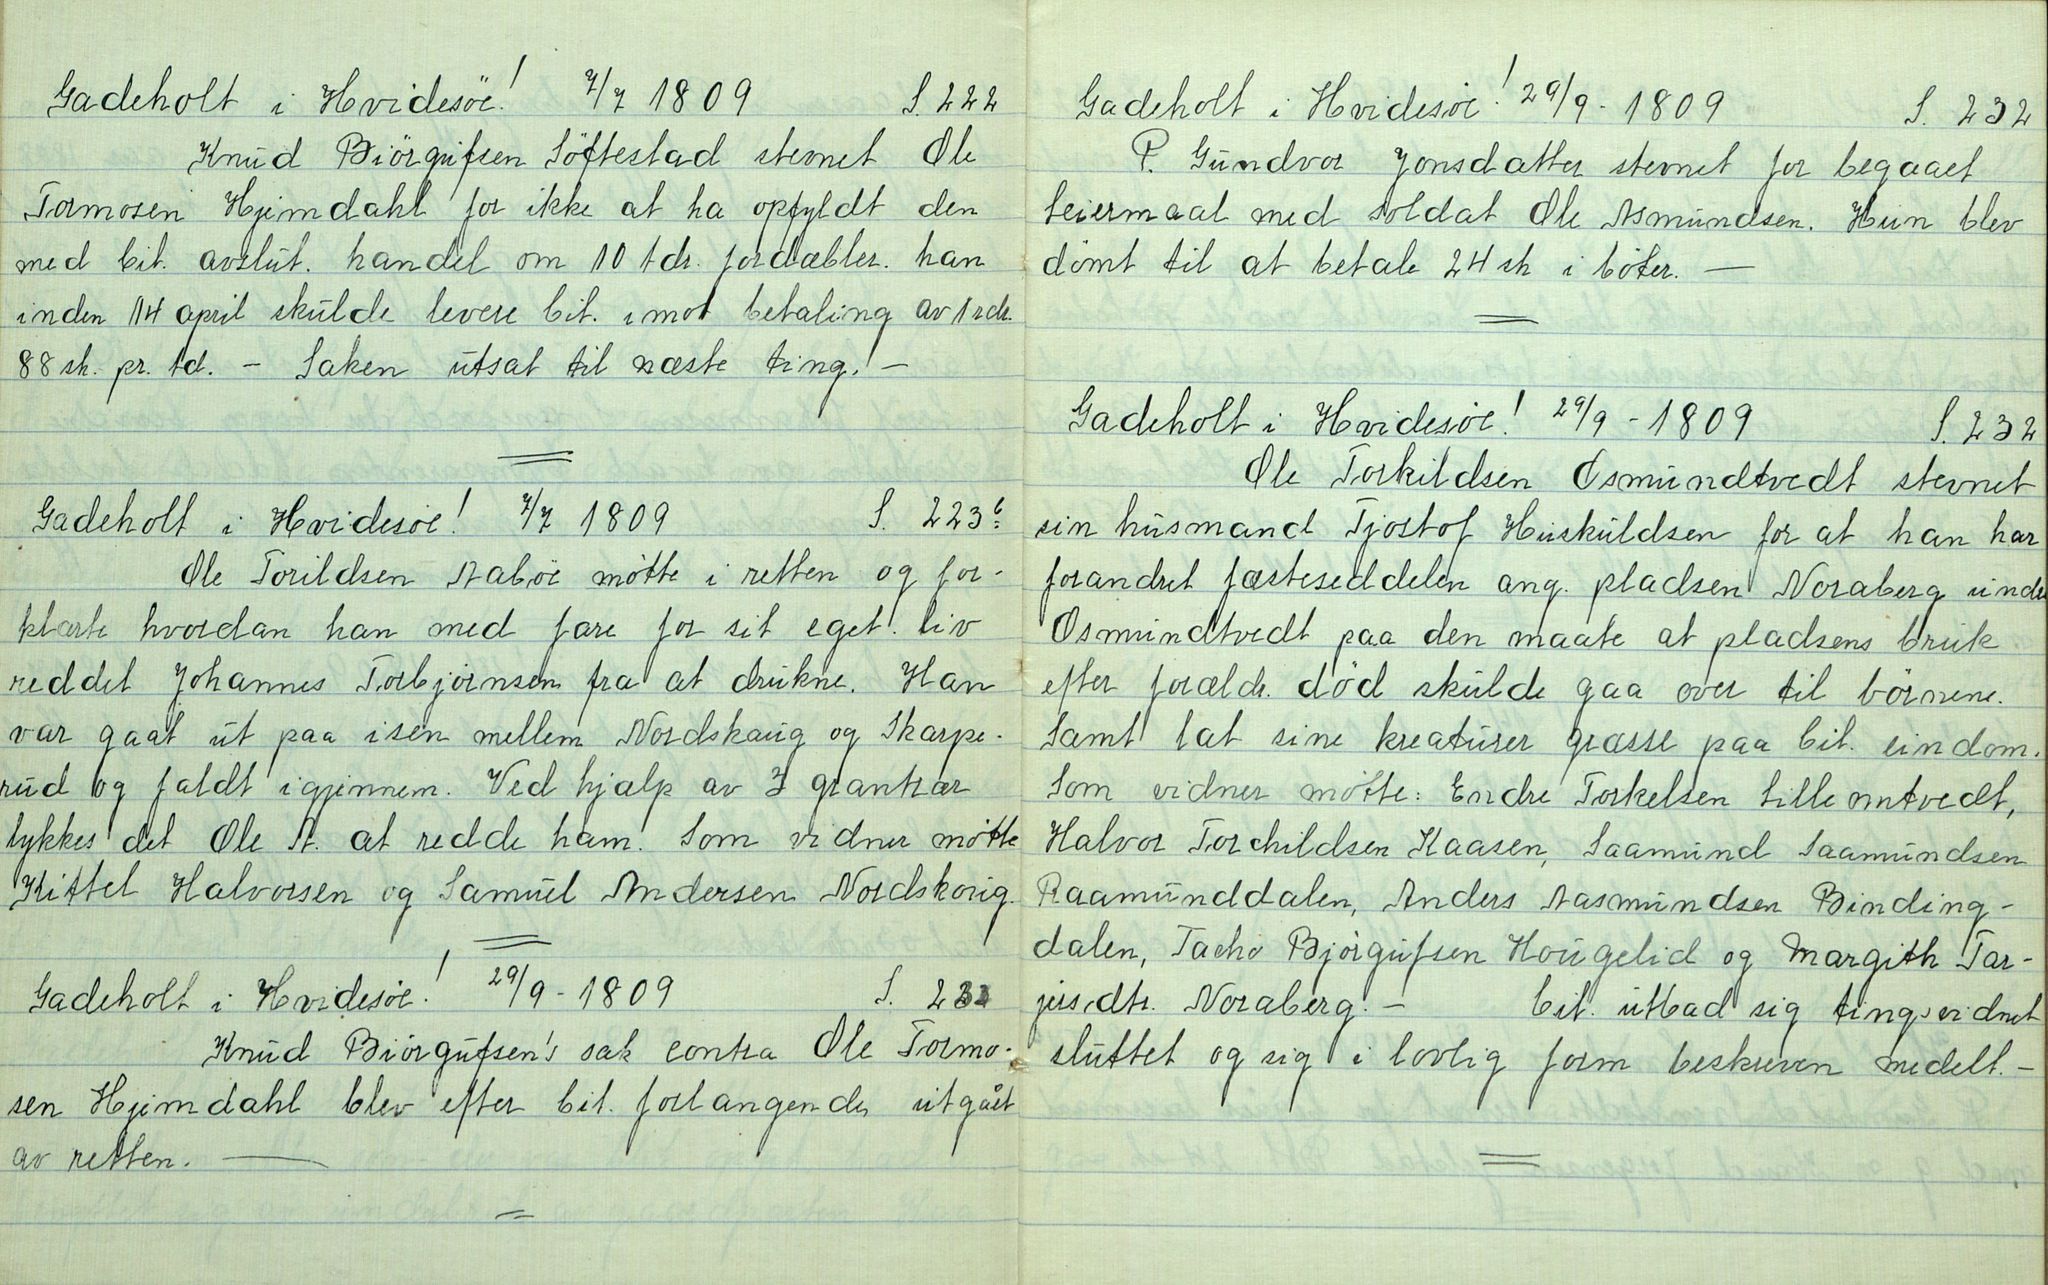 Gadeholt i Hvidesöe! 7/7 1809 S. 222
Knud Biörgufsen Söftestad stevnet Ole
Tormosen Hjemdahl for ikke at ha opfyldt den
med cit. avslut. handel om 10 tdr. jordæbler. han
inden 14 april skulde levere cit. imot betaling av 1 rdr.
88 sk. pr. td. – Saken utsat til næste ting. –
Gadeholt i Hvidesöe! 7/7 1809 S. 223b
Ole Torildsen Aaböe mötte i retten og for-
klarte hvordan han med fare for sit eget liv
reddet Johannes Torbjörnsen fra at drukne. Han
var gaat ut paa isen mellem Nordskaug og Skarpe-
rud og faldt igjennem. Ved hjælp av 3 grantrær
lykkes det Ole A. at redde ham. Som vidner mötte
Kittel Halvorsen og Samuel Andersen Nordskoug.
Gadeholt i Hvidesöe! 29/9 - 1809 S. 232
Knud Biörgufsen's sak contra Ole Tormo-
sen Hjemdahl blev efter cit. forlangende utgået
av retten. —
Gadeholt i Hvidesöe! 29/9 - 1809 S. 232
P. Gundvor Jonsdatter stevnet for begaaet
leiermaal med soldat Ole Asmundsen. Hun blev
dömt til at betale 24 sk i böter. —
Gadeholt i Hvidesöe! 29/9 - 1809 S. 232
Ole Torkildsen Osmundtvedt stevnet
sin husmand Tjostof Huskuldsen for at han har
forandret fæsteseddelen ang. pladsen Noraberg unde
Osmundtvedt paa den maate at pladsens bruk
efter forældr. död skulde gaa over til börnene.
Samt lat sine kreaturer græsse paa cit. eindom.
Som vidner mötte: Endre Torkelsen Lilleomtvedt,
Halvor Torchildsen Kaasen, Saamund Saamundsen
Raamunddalen, Anders Aasmundsen Binding-
dalen, Tacho Bjørgufsen Hougelid og Margith Tar-
jeisdtr. Noraberg. – Cit. utbad sig tingsvidnet
sluttet og sig i lovlig form beskreven medelt. –